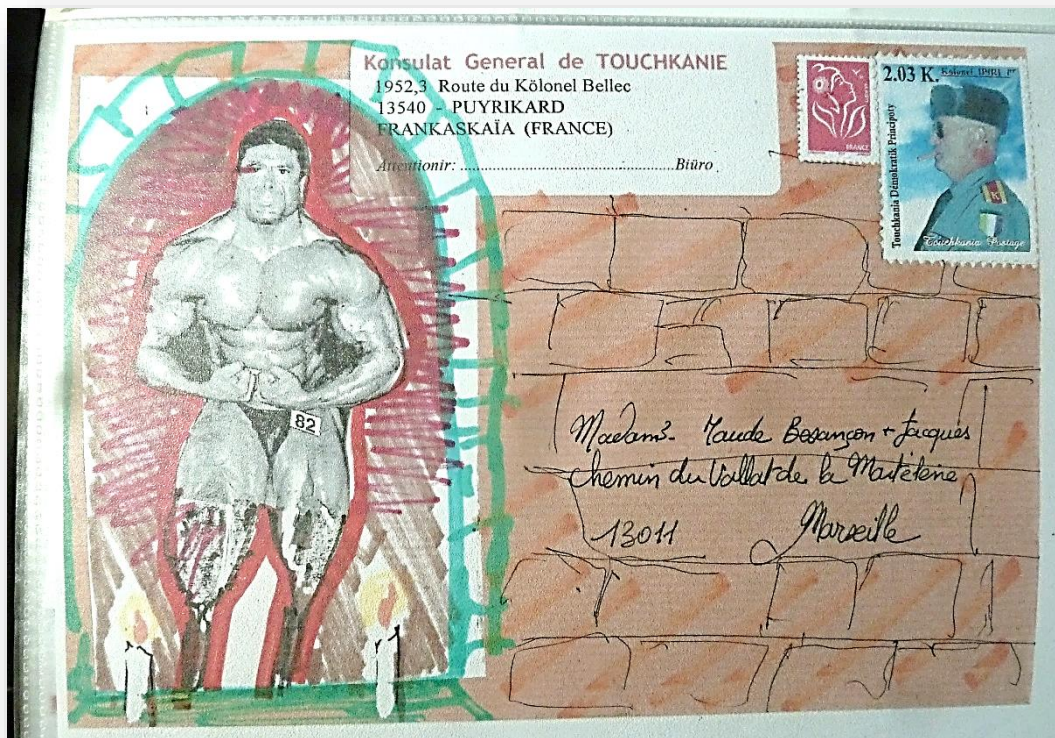 Konsulat General de TOUCHKANIE
1952,3 Route du Kölonel Bellec
13540 - PUYRIKARD
FRANKASKAÏA (FRANCE)
Attentionir: ..........................................................Biüro
FRANCE
2.03 K. Kolonel
Touchkania Demokratik Principoty
Touchkania Postage
82
Besançon + Jacques
chemin du Vallat de la
13011 Marseille